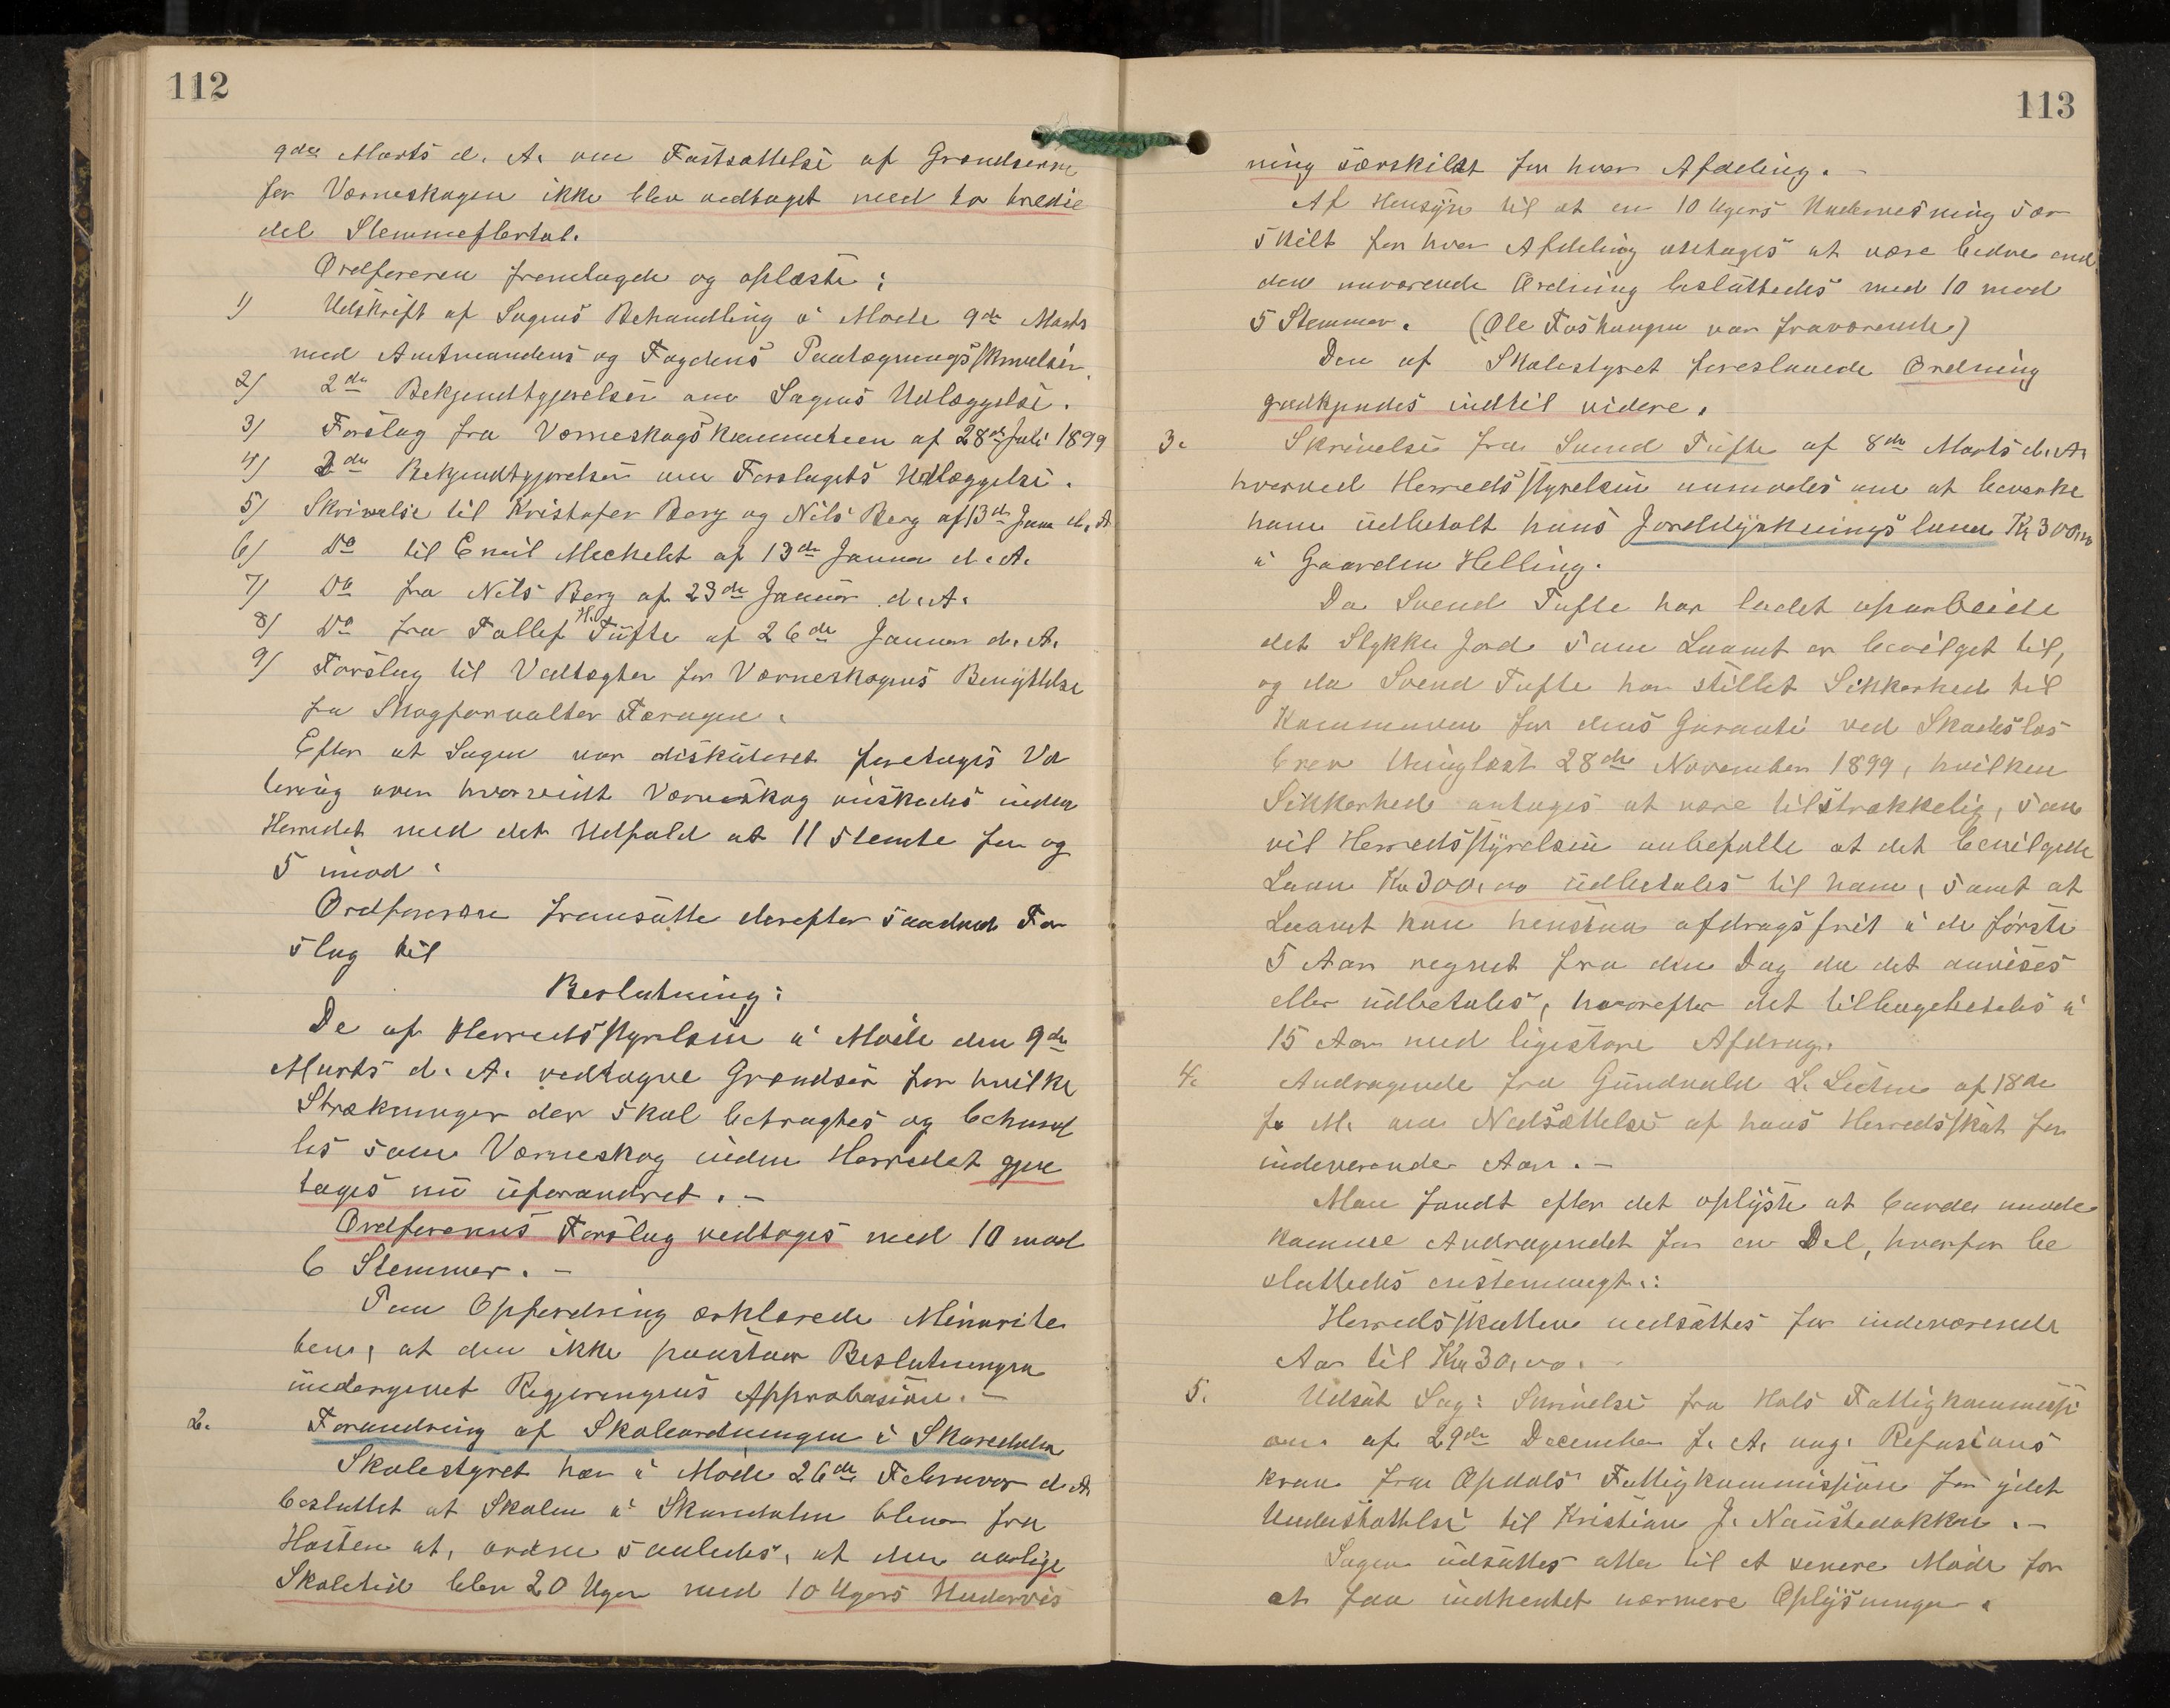 112
9de Marts d. A. om Fastsættelse af Grændserne
for Værneskogen ikke blev vedtaget med to tredie
del Stemmeflertal.
Ordføreren fremlagde og oplæste:
1) Udskrift af Sagens Behandling i Møde 9de Marts
med Amtmandens og Fogdens Paategningsskrivelser.
2) 2de Bekjendtgjørelser om Sagens Udlæggelse.
3) Forslag fra Værneskogskommiteen af 28de Juli 1899
4) 2de Bekjendtgjørelser om Forslagets Udlæggelse.
5) Skrivelse til Kristofer Berg og Nils Berg af 13de Janu d. A
6) Do til Emil Mechelet af 13de Januar d. A.
7) Do fra Nils Berg af 23de Januar d. A.
8) Do fra Tollef H. Tufte af 26de Januar d. A.
9) Forslag til Vedtægter for Værneskogens Benyttelse
fra Skogforvalter Færagen.
Efter at Sagen var diskuteret foretages Vo
tering over hvorvidt Værneskog ønskedes inden
Herredet med det Udfald at 11 stemte for og
5 imod.
Ordføreren fremsatte derefter saadant For
slag til
Beslutning:
De af Herredsstyrelsen i Møde den 9de
Marts d. A. vedtagne Grændser for hvilke
Strækninger der skal betragtes og behand
les som Værneskog inden Herredet gjen
tages nu uforandret. –
Ordførerens Forslag vedtoges med 10 mod
6 Stemmer. –
Paa Opfordring erklærede Minorite
ten, at den ikke paastaar Beslutningen
undergivet Regjeringens Approbasion. –
2. Forandring af Skoleordningen i Skaredalen
Skolestyret har i Møde 26de Februar d. A.
besluttet at Skolen i Skaredalen bliver fra
Høsten at ordne saaledes, at den aarlige
Skoletid blev 20 Uger med 10 Ugers Undervis
113
ning særskildt for hver Afdeling. –
Af Hensyn til at en 10 Ugers Undervisning sær
skilt for hver Afdeling antages at være bedre end
den nuværende Ordning besluttedes med 10 mod
5 Stemmer. (Ole Foshaugen var fraværende)
Den af Skolestyret foreslaaede Ordning
godkjendes indtil videre.
3. Skrivelse fra Svend Tufte af 8de Marts d. A.
hvorved Herredsstyrelsen anmodes om at bevirke
ham udbetalt hans Jorddyrkningslaan Kr 300,00
i Gaarden Helling.
Da Svend Tufte har ladet oparbeide
det Stykke Jord som Laanet er bevilget til,
og da Svend Tufte har stillet Sikkerhed til
Kommunen for dens Garanti ved Skadesløs
brev thinglæst 28de November 1899, hvilken
Sikkerhed antages at være tilstrækkelig, saa
vil Herredsstyrelsen anbefalle at det bevilgede
Laan Kr 300,00 udbetales til ham, samt at
Laanet kan henstaa afdragsfrit i de første
5 Aar regnet fra den Dag da det anvises
eller udbetales, hvorefter det tilbagebetales i
15 Aar med ligestore Afdrag.
4. Andragende fra Gundvald L. af 18de
f. M. om Nedsættelse af hans Herredsskat for
indeværende Aar. –
Man fandt efter det oplyste at burde imøde
komme Andragendet for en Del, hvorfor be
sluttedes enstemmigt:
Herredsskatten nedsættes for indeværende
Aar til Kr 30,00.
5. Udsat Sag: Skrivelse fra Hols Fattigkommissi
on af 29de December f. A. ang. Refusions
krav fra Opdals Fattigkommission for ydet
Understøttelse til Kristian J. Naustebakken. –
Sagen udsættes atter til et senere Møde for
at faa indhentet nærmere Oplysninger.